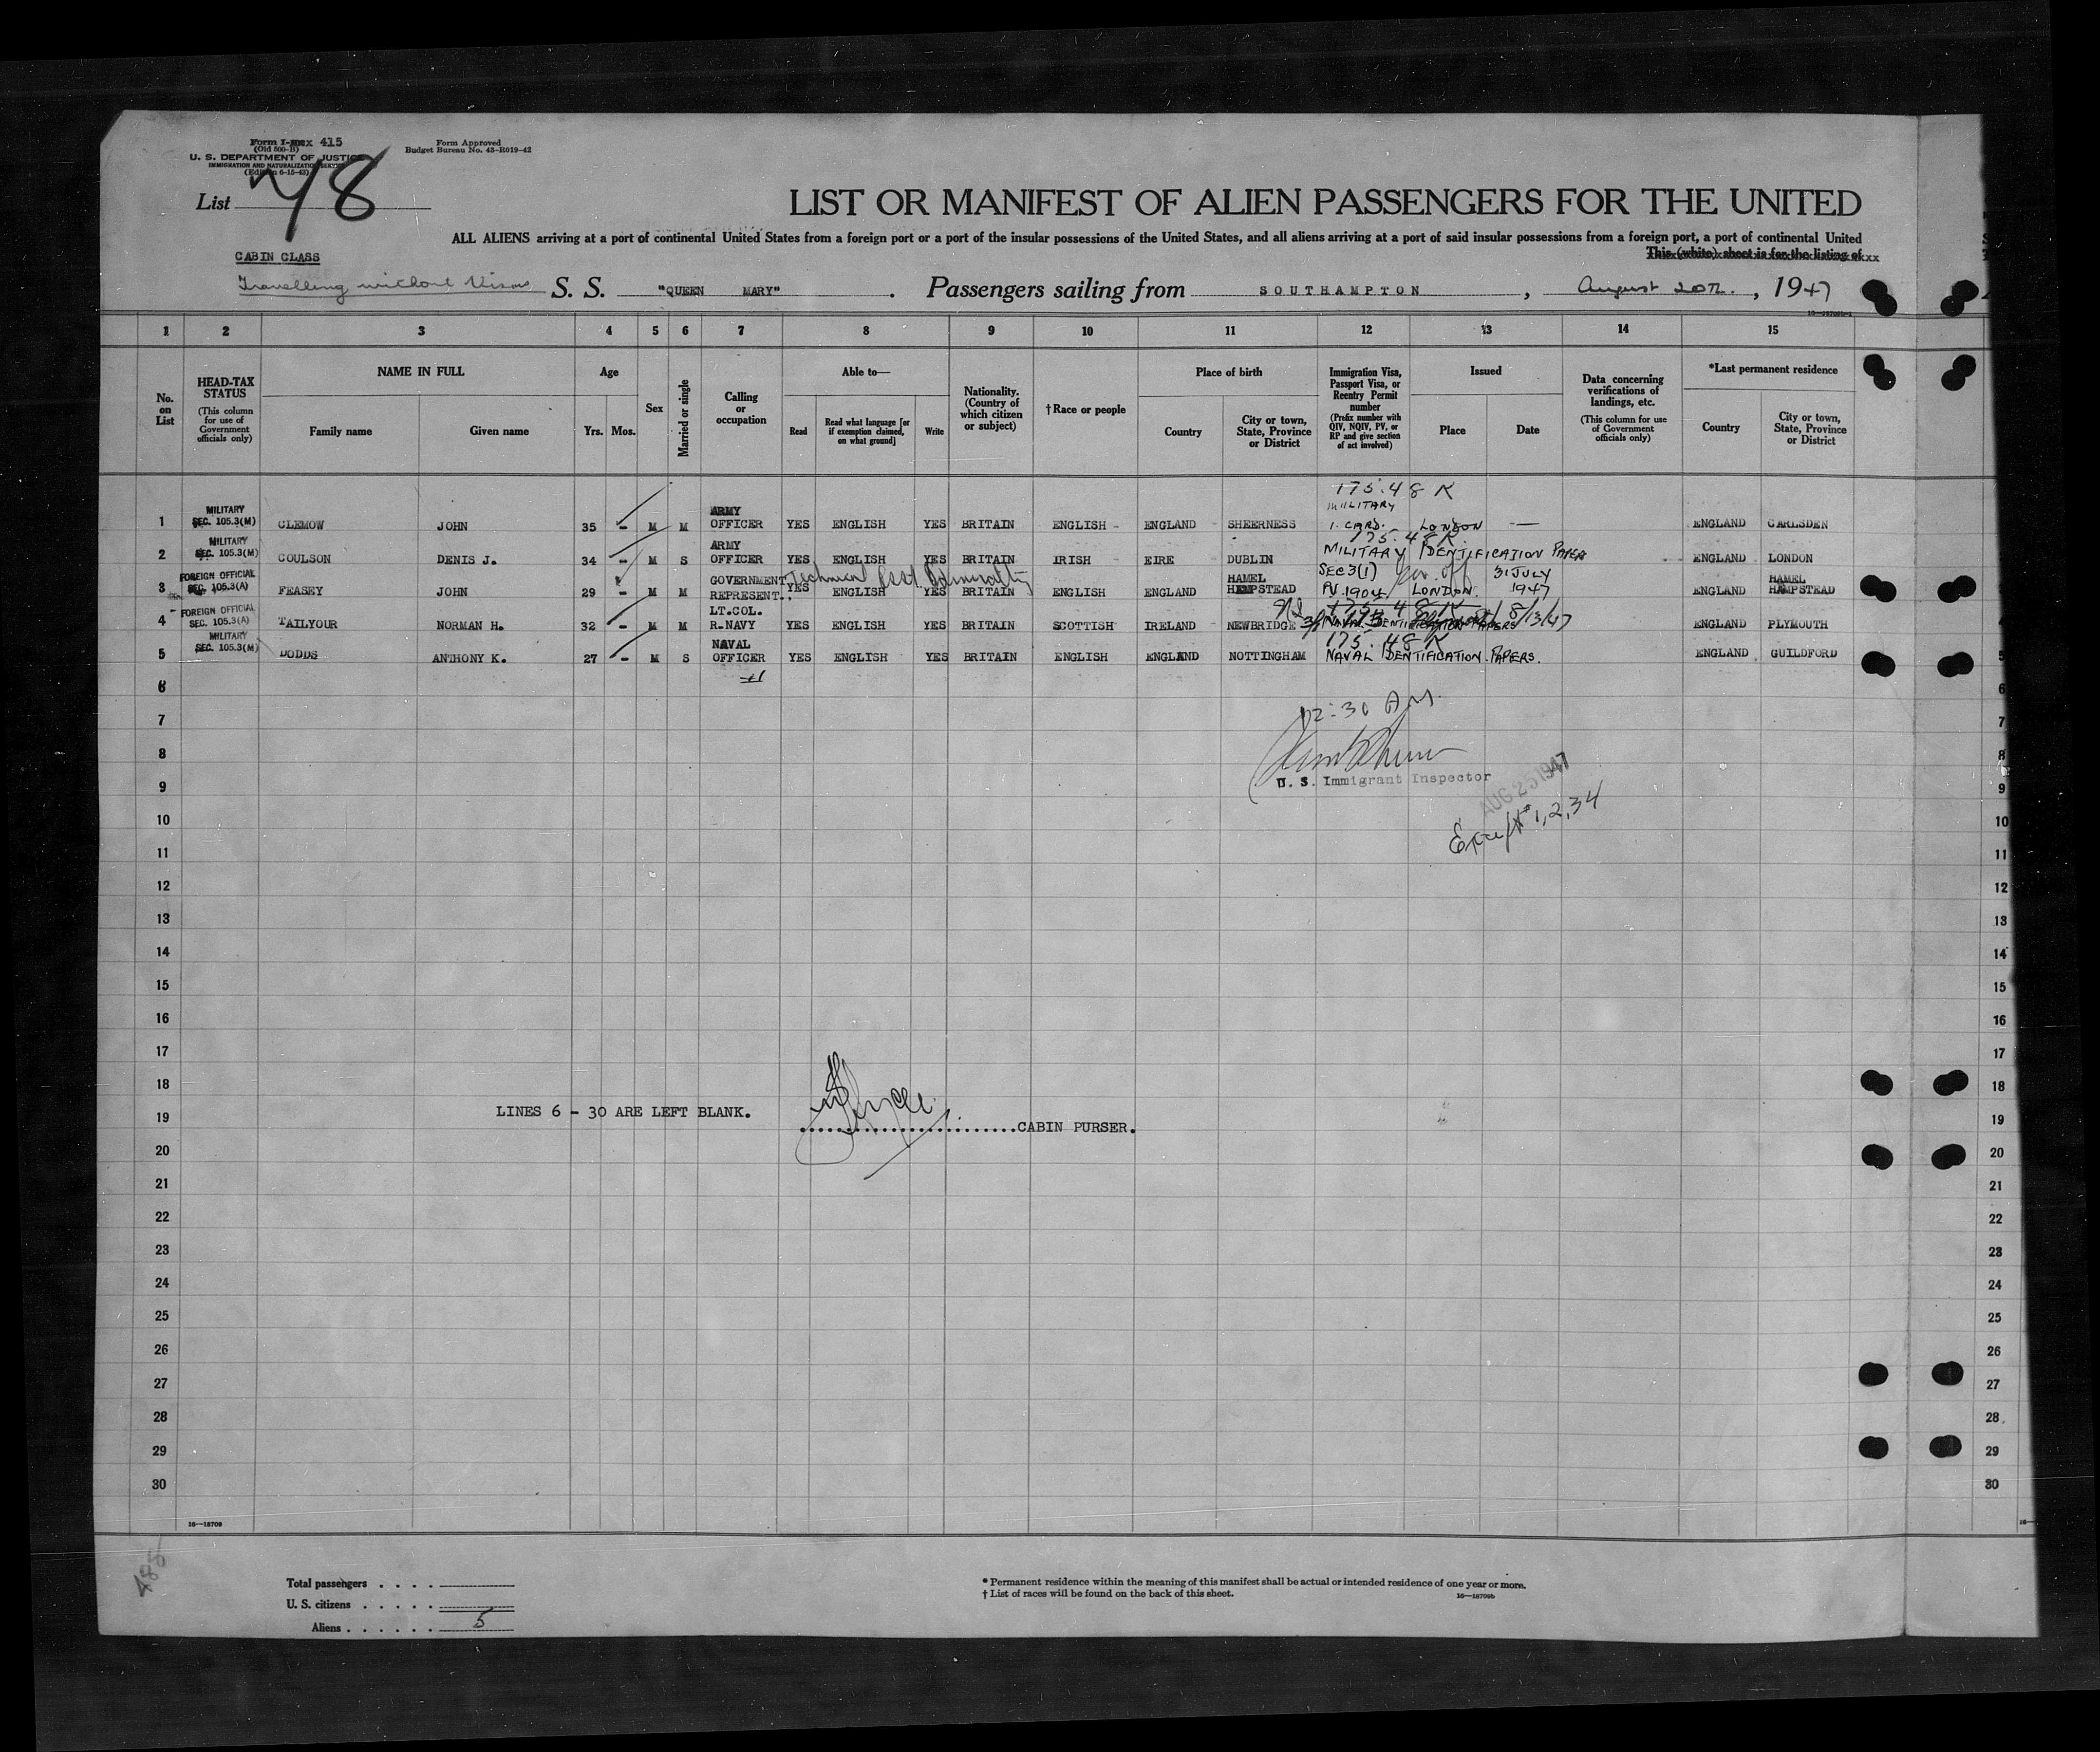 Form I- 415
(Old 500-B)
U. S. DEPARTMENT OF JUSTICE
IMMIGRATION AND NATURALIZATION SERVICE
(Edition 6-15-43)
Form Approved
Budget Bureau No. 43-R019-42
List 48
LIST OR MANIFEST OF ALIEN PASSENGERS FOR THE UNITED
ALL ALIENS arriving at a port of continental United States from a foreign port or a port of the insular possessions of the United States, and all aliens arriving at a port of said insular possessions from a foreign port, a port of continental United
This (white) sheet is for the listing of
CABIN CLASS
Travelling without Visas S. S. "QUEEN MARY" . Passengers sailing from SOUTHAMPTON , August 20th , 1947
1 2 3 4 5 6 7 8 9 10 11 12 13 14 15
No. on List
HEAD-TAX STATUS
(This column for use of Government officials only)
NAME IN FULL
Family name Given name
Age
Yrs. Mos.
Sex
Married or single
Calling or occupation
Able to—
Read Read what language [or if exemption claimed, on what ground] Write
Nationality. (Country of which citizen or subject)
†Race or people
Place of birth
Country City or town, State, Province or District
Immigration Visa, Passport Visa, or Reentry Permit number
(Prefix number with QIV, NQIV, PV, or RP and give section of act involved)
Issued
Place Date
Data concerning verifications of landings, etc.
(This column for use of Government officials only)
*Last permanent residence
Country City or town, State, Province or District
175.48 K
1 MILITARY SEC. 105.3(M) CLEMOW JOHN 35 - M M ARMY OFFICER YES ENGLISH YES BRITAIN ENGLISH - ENGLAND SHEERNESS MILITARY I. CARD. LONDON — ENGLAND CARLSDEN
175.48 K
2 MILITARY SEC. 105.3(M) COULSON DENIS J. 34 - M S ARMY OFFICER YES ENGLISH YES BRITAIN IRISH EIRE DUBLIN MILITARY IDENTIFICATION PAPER ENGLAND LONDON
Technical Asst. Admiralty
3 FOREIGN OFFICIAL SEC. 105.3(A) FEASEY JOHN 29 - M M GOVERNMENT REPRESENT. YES ENGLISH YES BRITAIN ENGLISH ENGLAND HAMEL HEMPSTEAD SEC 3(1) PV 1904 LONDON 31 JULY 1947 ENGLAND HAMEL HAMPSTEAD
4 FOREIGN OFFICIAL SEC. 105.3(A) TAILYOUR NORMAN H. 32 - M M LT.COL. R.NAVY YES ENGLISH YES BRITAIN SCOTTISH IRELAND NEWBRIDGE 175.48 K NAVAL IDENTIFICATION PAPERS 8/13/47 ENGLAND PLYMOUTH
175.48 K
5 MILITARY SEC. 105.3(M) DODDS ANTHONY K. 27 - M S NAVAL OFFICER YES ENGLISH YES BRITAIN ENGLISH ENGLAND NOTTINGHAM NAVAL IDENTIFICATION PAPERS. ENGLAND GUILDFORD
6 6
7 7
8 8
9 9
10 10
11 11
12 12
13 13
14 14
15 15
16 16
17 17
18 18
19 19
20 20
21 21
22 22
23 23
24 24
25 25
26 26
27 27
28 28
29 29
30 30
12:30 AM
U. S. Immigrant Inspector
AUG 25 1947
Except # 1,2,3 4
LINES 6 - 30 ARE LEFT BLANK.
CABIN PURSER.
16—18709
485
Total passengers . . . .
U. S. citizens . . . . .
Aliens . . . . . . 5
* Permanent residence within the meaning of this manifest shall be actual or intended residence of one year or more.
† List of races will be found on the back of this sheet.
16—18709b